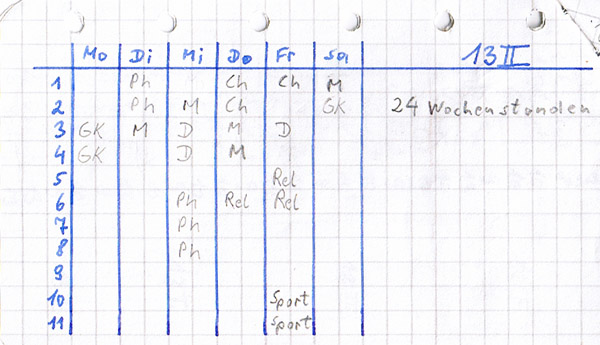 Mo Di Mi Do Fr Sa 13II
1 Ph Ch Ch M
2 Ph M Ch GK 24 Wochenstunden
3 GK M D M D
4 GK D M
5 Rel
6 Ph Rel Rel
7 Ph
8 Ph
9
10 Sport
11 Sport